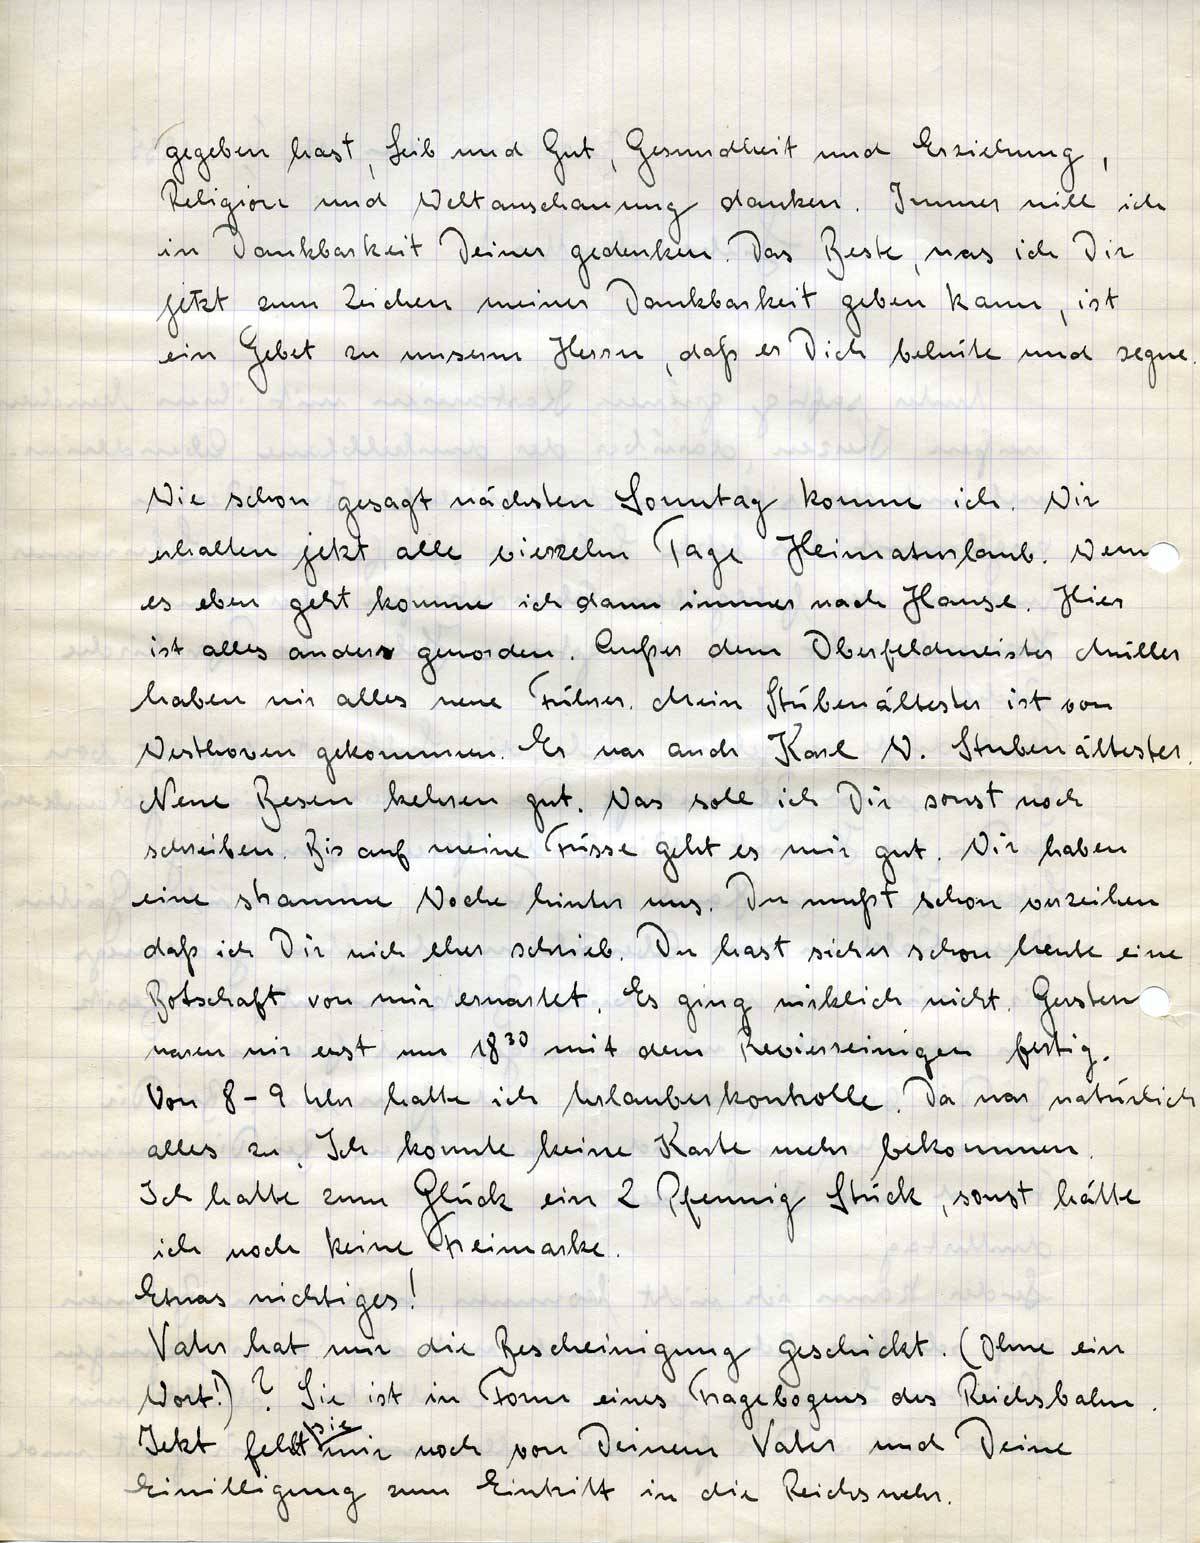 gegeben hast, Leib und Gut, Gesundheit und Erziehung,
Religion und Weltanschauung danken. Immer will ich
in Dankbarkeit Deiner gedenken. Das Beste, was ich Dir
jetzt zum Zeichen meiner Dankbarkeit geben kann, ist
ein Gebet zu unserm Herrn, daß er Dich behüte und segne.
Wie schon gesagt nächsten Sonntag komme ich. Wir
erhalten jetzt alle vierzehn Tage Heimaturlaub. Wenn
es eben geht komme ich dann immer nach Hause. Hier
ist alles anders geworden. Außer dem Oberfeldmeister Müller
haben wir alles neue Führer. Mein Stubenältester ist von
Westhoven gekommen. Er war auch Karl W. Stubenältester.
Neue Besen kehren gut. Was soll ich Dir sonst noch
schreiben. Bis auf meine Füsse geht es mir gut. Wir haben
eine stramme Woche hinter uns. Du mußt schon verzeihen
daß ich Dir nich eher schrieb. Du hast sicher schon heute eine
Botschaft von mir erwartet. Es ging wirklich nicht. Gestern
waren wir erst um 18³⁰ mit dem Revierreinigen fertig.
Von 8-9 Uhr hatte ich Urlauberkontrolle. Da war natürlich
alles zu. Ich konnte keine Karte mehr bekommen.
Ich hatte zum Glück ein 2 Pfennig Stück, sonst hätte
ich noch keine Freimarke.
Etwas wichtiges!
Vater hat mir die Bescheinigung geschickt. (Ohne ein
Wort!) ? Sie ist in Form eines Fragebogens der Reichsbahn.
Jetzt fehlt mir noch von Deinem Vater und Deine
Einwilligung zum Eintritt in die Reichswehr.